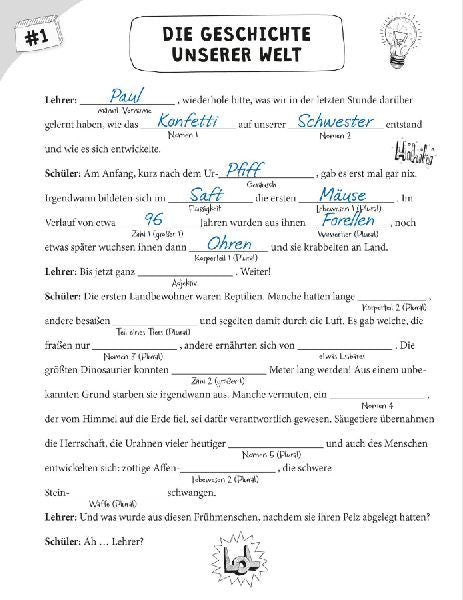 #1
DIE GESCHICHTE
UNSERER WELT
Lehrer: Paul, wiederhole bitte, was wir in der letzten Stunde darüber
männl. Vorname
gelernt haben, wie das Konfetti auf unserer Schwester entstand
Nomen 1 Nomen 2
und wie es sich entwickelte.
Schüler: Am Anfang, kurz nach dem Ur-Pfiff, gab es erst mal gar nix.
Geräusch
Irgendwann bildeten sich im Saft die ersten Mäuse. Im
Flüssigkeit Lebewesen 1 (Plural)
Verlauf von etwa 96 Jahren wurden aus ihnen Forellen, noch
Zahl 1 (größer 1) Wassertier (Plural)
etwas später wuchsen ihnen dann Ohren und sie krabbelten an Land.
Körperteil 1 (Plural)
Lehrer: Bis jetzt ganz ____________. Weiter!
Adjektiv
Schüler: Die ersten Landbewohner waren Reptilien. Manche hatten lange ____________,
Körperteil 2 (Plural)
andere besaßen ____________ und segelten damit durch die Luft. Es gab welche, die
Teil eines Tiers (Plural)
fraßen nur ____________, andere ernährten sich von ____________. Die
Nomen 3 (Plural) etwas Essbares
größten Dinosaurier konnten ____________ Meter lang werden! Aus einem unbe-
Zahl 2 (größer 1)
kannten Grund starben sie irgendwann aus. Manche vermuten, ein ____________,
Nomen 4
der vom Himmel auf die Erde fiel, sei dafür verantwortlich gewesen. Säugetiere übernahmen
die Herrschaft, die Urahnen vieler heutiger ____________ und auch des Menschen
Nomen 5 (Plural)
entwickelten sich: zottige Affen-____________, die schwere
Lebewesen 2 (Plural)
Stein-____________ schwangen.
Waffe (Plural)
Lehrer: Und was wurde aus diesen Frühmenschen, nachdem sie ihren Pelz abgelegt hatten?
Schüler: Äh … Lehrer?
LOL